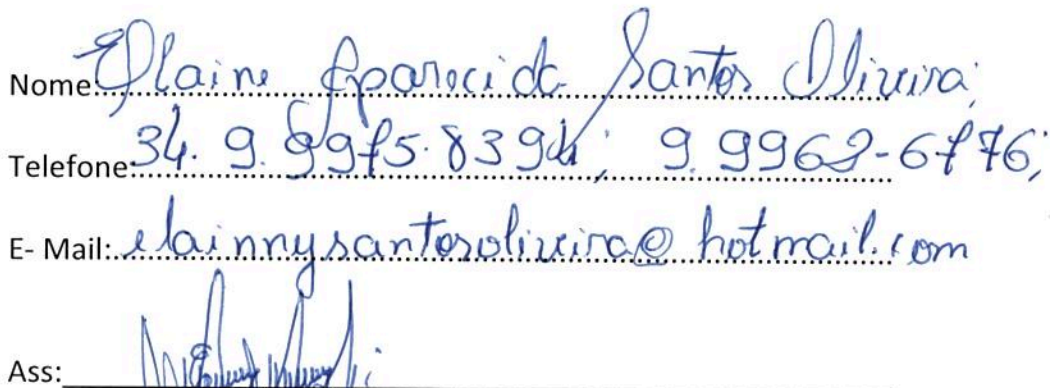 Nome: Elaine Aparecida Santos Oliveira;
Telefone: 34. 9. 9975.8394; 9. 9962-6776;
E- Mail: elainnysantosoliveira@hotmail.com
Ass: